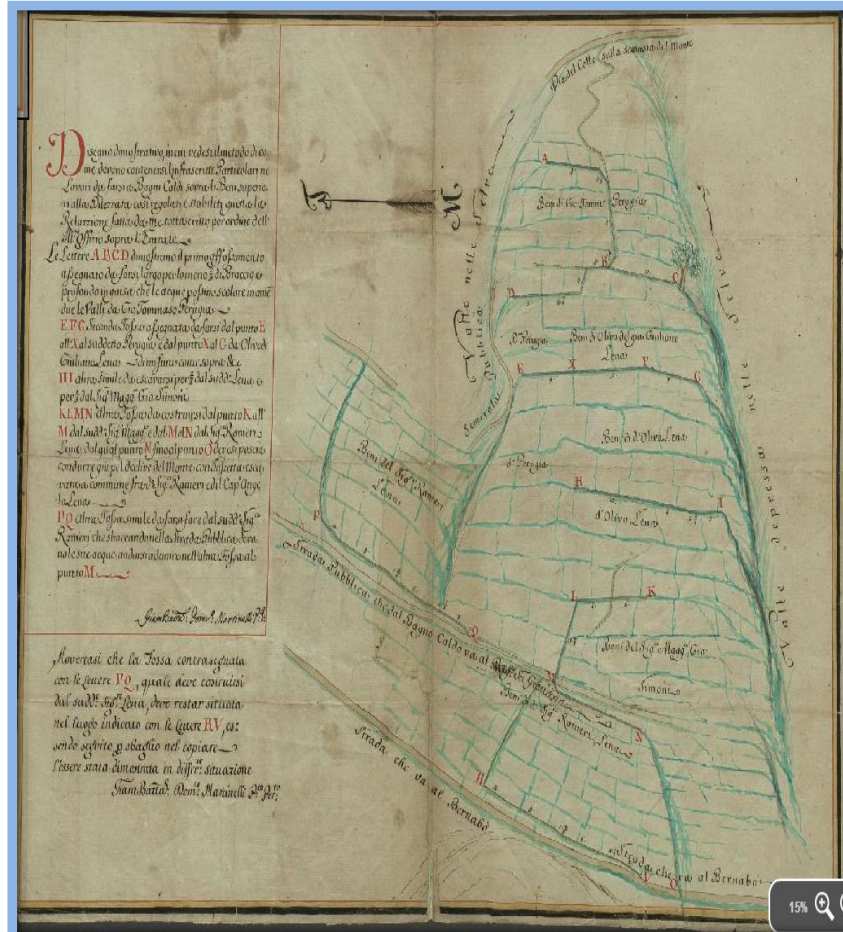 Disegno dimostrativo, in cui vedesi il metodo di co
me devono contenersi l'infrascritti Particolari ne
Lavori da farsi a Bagni Caldi sopra li Beni superio
ri alla così regolati, e stabiliti giusta la
Relazione fatta da me sottoscritto per ordine dell'
Offizio sopra l'Entrate
Le Lettere A B C D dimostrano il primo affossamento
assegnato da farsi largo per lo meno di Braccia e
profondo in guisa, che le acque possino scolare in ame
due le Valli da Gio Tommaso Perugia
E F G Seconda Fossa assegnata da farsi dal punto E
all' X al suddetto Perugia, e dal punto X al G da Olivo di
Giuliani Lena
H I altra simile da escavarsi dal Lena, e
dal Sig. Magg. Gio Simoni
K L M N altra Fossa da costruirsi dal punto K all'
M dal Sig. Magg. e dal M al N dal Sig. Ranieri
Lena, dal qual punto N sino al punto O
condurre giù pel declive del Monte con Fossetta esca
vata a commune fra di Sig. Ranieri e il Cap. Ange
lo Lena
P Q altra Fossa simile da farsi fare dal Sig.
Ranieri che sboccando nella Strada Pubblica
no le sue acque andare ad unire nell'altra Fossa al
punto M
Giam Batta Dom. Martinelli
Avvertasi che la Fossa contrasegnata
con le lettere P Q, quale deve costruirsi
dal Sig. Lena, deve restar situata
nel luogo indicato con le lettere R V, es:
sendo seguito sbaglio nel copiare
l'essere stata dimostrata in situazione
Giam: Batta Dom. Martinelli
M
Via del Colle sulla sommità del Monte
Valle nelle Selve
Pubblica
A
Beni di Gio Tomm. Perugia
B
C
D
Perugia
Beni di Olivo del qm Giuliano
Lena
E
X
F
G
Beni di Olivo Lena
Perugia
H
I
d'Olivo Lena
L
K
Beni del Sig. Magg. Gio
Simoni
Valle depressa nelle Selve
Beni del Sig. Ranieri
Lena
P
Q
Strada Pubblica, che dal Bagno Caldo va al
M
N
Beni del Sig. Ranieri Lena
R
Strada che va al Bernabò
Strada, che va al Bernabò
V
O
15%